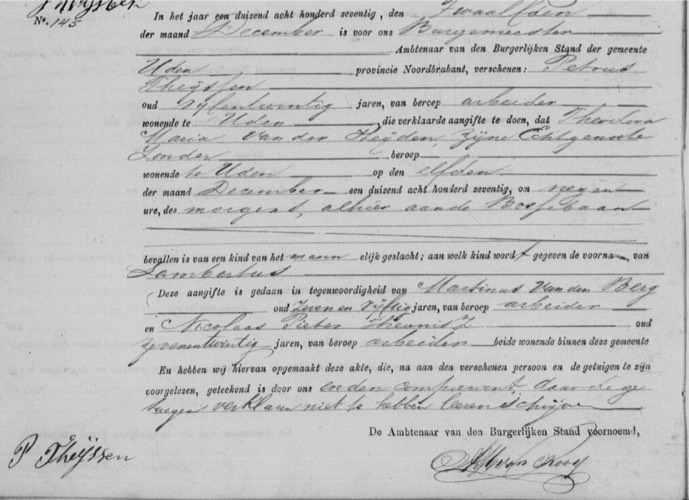 Thijssen
No. 145
In het jaar een duizend acht honderd zeventig, den Twaalfden
der maand December is voor ons Burgemeester
Ambtenaar van den Burgerlijken Stand der gemeente
Uden provincie Noordbrabant, verschenen: Petrus
Theyssen
oud vijfentwintig jaren, van beroep arbeider
wonende te Uden, die verklaarde aangifte te doen, dat Theodora
Maria van der Heijden, Zijne Echtgenoote
Zonder beroep
wonende te Uden op den elfden
der maand December een duizend acht honderd zeventig, om negen
ure, des morgens, alhier aan de
bevallen is van een kind van het mannelijk geslacht; aan welk kind wordt gegeven de voornaam van
Lambertus
Deze aangifte is gedaan in tegenwoordigheid van Martinus van den Berg
oud Zeven en Vijftig jaren, van beroep arbeider
en Nicolaas Pieter oud
zevenentwintig jaren, van beroep arbeider beide wonende binnen deze gemeente
En hebben wij hiervan opgemaakt deze akte, die, na aan den verschenen persoon en de getuigen te zijn
voorgelezen, geteekend is door ons en den comparant, daar de ge
tuigen verklaren niet te hebben leeren schrijven
De Ambtenaar van den Burgerlijken Stand voornoemd,
P Theijssen